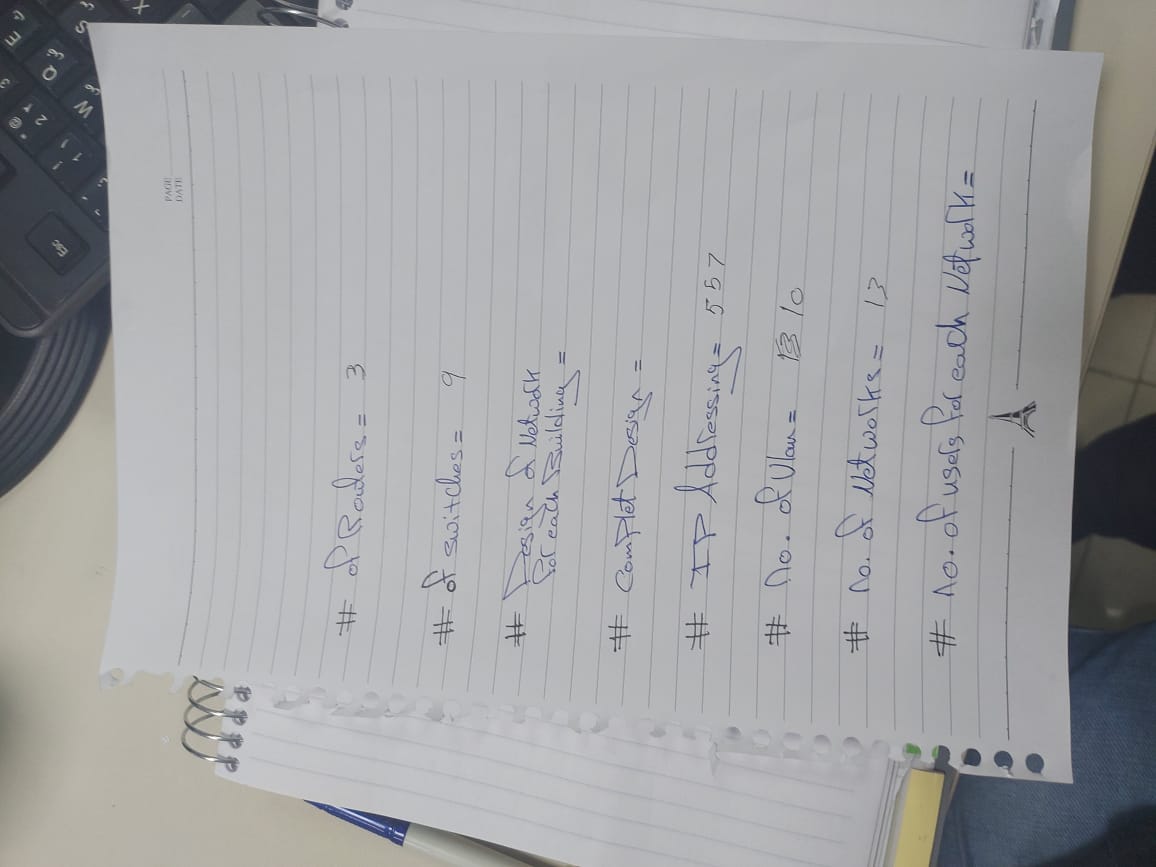 PAGE
DATE
# of Routers = 3
# of switches = 9
# Design of Network
for each Building =
# Complet Design =
# IP Addressing = 557
# no. of Vlan = 10
# no. of Networks = 13
# no. of users for each Network =